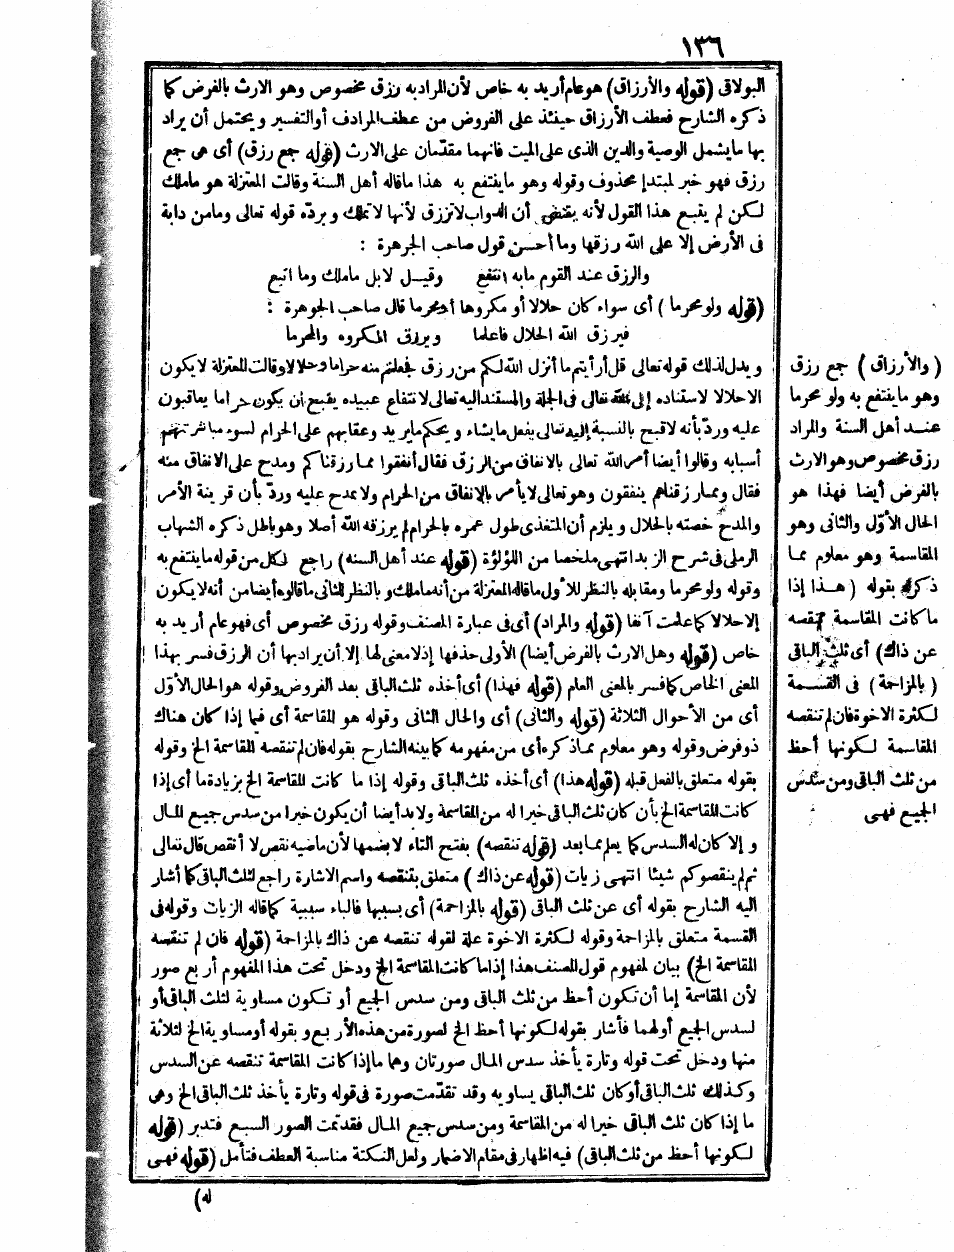 ١٣٦
البولاقى (قوله والأرزاق) هو عام أريد به خاص لأن المراد به رزق مخصوص وهو الارث بالفرض كما
ذكره الشارح فعطف الأرزاق حينئذ على الفروض من عطف المرادف أو التفسير ويحتمل أن يراد
بها ما يشمل الوصية والدين الذى على الميت فانهما مقدّمان على الارث (قوله جمع رزق) أى هى جمع
رزق فهو خبر لمبتدإ محذوف وقوله وهو ما ينتفع به هذا ما قاله أهل السنة وقالت المعتزلة هو ما ملك
لكن لم يقبع هذا القول لأنه يقتضى أن الدواب لا ترزق لأنها لا تملك ويردّه قوله تعالى وما من دابة
فى الأرض إلا على الله رزقها وما أحسن قول صاحب الجوهرة :
والرزق عند القوم ما به انتفع وقيل لا بل ما ملك وما اتبع
(قوله ولو محرما) أى سواء كان حلالا أو مكروها أو محرما قال صاحب الجوهرة :
فيرزق الله الحلال فاعلما ويرزق المكروه والمحرما
ويدل لذلك قوله تعالى قل أرأيتم ما أنزل الله لكم من رزق فجعلتم منه حراما وحلالا وقالت المعتزلة لا يكون
الاحلالا لاستناده إلى الله تعالى فى الجملة والمستند اليه تعالى لانتفاع عبيده يقبح أن يكون حراما يعاقبون
عليه وردّ بأنه لا قبح بالنسبة إليه تعالى يفعل ما يشاء ويحكم ما يريد وعقابهم على الحرام لسوء مباشرتهم
أسبابه وقالوا أيضا أمر الله تعالى بالانفاق من الرزق فقال أنفقوا مما رزقناكم ومدح على الانفاق منه
فقال ومما رزقناهم ينفقون وهو تعالى لا يأمر بالإنفاق من الحرام ولا يمدح عليه وردّ بأن قرينة الأمر
والمدح خصته بالحلال ويلزم أن المتغذى طول عمره بالحرام لم يرزقه الله أصلا وهو باطل ذكره الشهاب
الرملى فى شرح الزبد انتهى ملخصا من اللؤلؤة (قوله عند أهل السنه) راجع لكل من قوله ما ينتفع به
وقوله ولو محرما ومقابله بالنظر للأول ما قاله المعتزلة من أنه ما ملك وبالنظر للثانى ما قالوه أيضا من أنه لا يكون
إلا حلالا كما علمت آنفا (قوله والمراد) أى فى عبارة المصنف وقوله رزق مخصوص أى فهو عام أريد به
خاص (قوله وهل الارث بالفرض أيضا) الأولى حذفها إذ لا معنى لها إلا أن يراد بها أن الرزق فسر بهذا
المعنى الخاص كما فسر بالمعنى العام (قوله فهذا) أى أخذه ثلث الباقى بعد الفروض وقوله هو الحال الأوّل
أى من الأحوال الثلاثة (قوله والثانى) أى والحال الثانى وقوله هو المقاسمة أى فيما إذا كان هناك
ذو فرض وقوله وهو معلوم مما ذكره أى من مفهومه كما بينه الشارح بقوله فان لم تنقصه المقاسمة الخ وقوله
بقوله متعلق بالفعل قبله (قوله هذا) أى أخذه ثلث الباقى وقوله إذا ما كانت المقاسمة الخ بزيادة ما أى إذا
كانت المقاسمة الخ بأن كان ثلث الباقى خيرا له من المقاسمة ولا بد أيضا أن يكون خيرا من سدس جميع المال
وإلا كان له السدس كما يعلم مما بعد (قوله تنقصه) بفتح التاء لا بضمها لأن ماضيه نقص لا أنقص قال تعالى
ثم لم ينقصوكم شيئا انتهى زيات (قوله عن ذاك) متعلق بتنقصه واسم الاشارة راجع لثلث الباقى كما أشار
اليه الشارح بقوله أى عن ثلث الباقى (قوله بالمزاحمة) أى بسببها فالباء سببية كما قاله الزيات وقوله فى
القسمة متعلق بالمزاحمة وقوله لكثرة الاخوة علة لقوله تنقصه عن ذاك بالمزاحمة (قوله فان لم تنقصه
المقاسمة الخ) بيان لمفهوم قول المصنف هذا إذا ما كانت المقاسمة الخ ودخل تحت هذا المفهوم أربع صور
لأن المقاسمة إما أن تكون أحظ من ثلث الباقى ومن سدس الجميع أو تكون مساوية لثلث الباقى أو
لسدس الجميع أو لهما فأشار بقوله لكونها أحظ الخ لصورة من هذه الأربع وبقوله أو مساوية الخ لثلاثة
منها ودخل تحت قوله وتارة يأخذ سدس المال صورتان وهما ما إذا كانت المقاسمة تنقصه عن السدس
وكذلك ثلث الباقى أو كان ثلث الباقى يساويه وقد تقدّمت صورة فى قوله وتارة يأخذ ثلث الباقى الخ وهى
ما إذا كان ثلث الباقى خيرا له من المقاسمة ومن سدس جميع المال فقد تمت الصور السبع فتدبر (قوله
لكونها أحظ من ثلث الباقى) فيه اظهار فى مقام الاضمار ولعل النكتة مناسبة العطف فتأمل (قوله فهى
له)
(والأرزاق) جمع رزق
وهو ما ينتفع به ولو محرما
عند أهل السنة والمراد
رزق مخصوص وهو الارث
بالفرض أيضا فهذا هو
الحال الأوّل والثانى وهو
المقاسمة وهو معلوم مما
ذكره بقوله (هذا إذا
ما كانت المقاسمة تنقصه
عن ذاك) أى ثلث الباقى
(بالمزاحمة) فى القسمة
لكثرة الاخوة فان لم تنقصه
المقاسمة لكونها أحظ
من ثلث الباقى ومن سدس
الجميع فهى